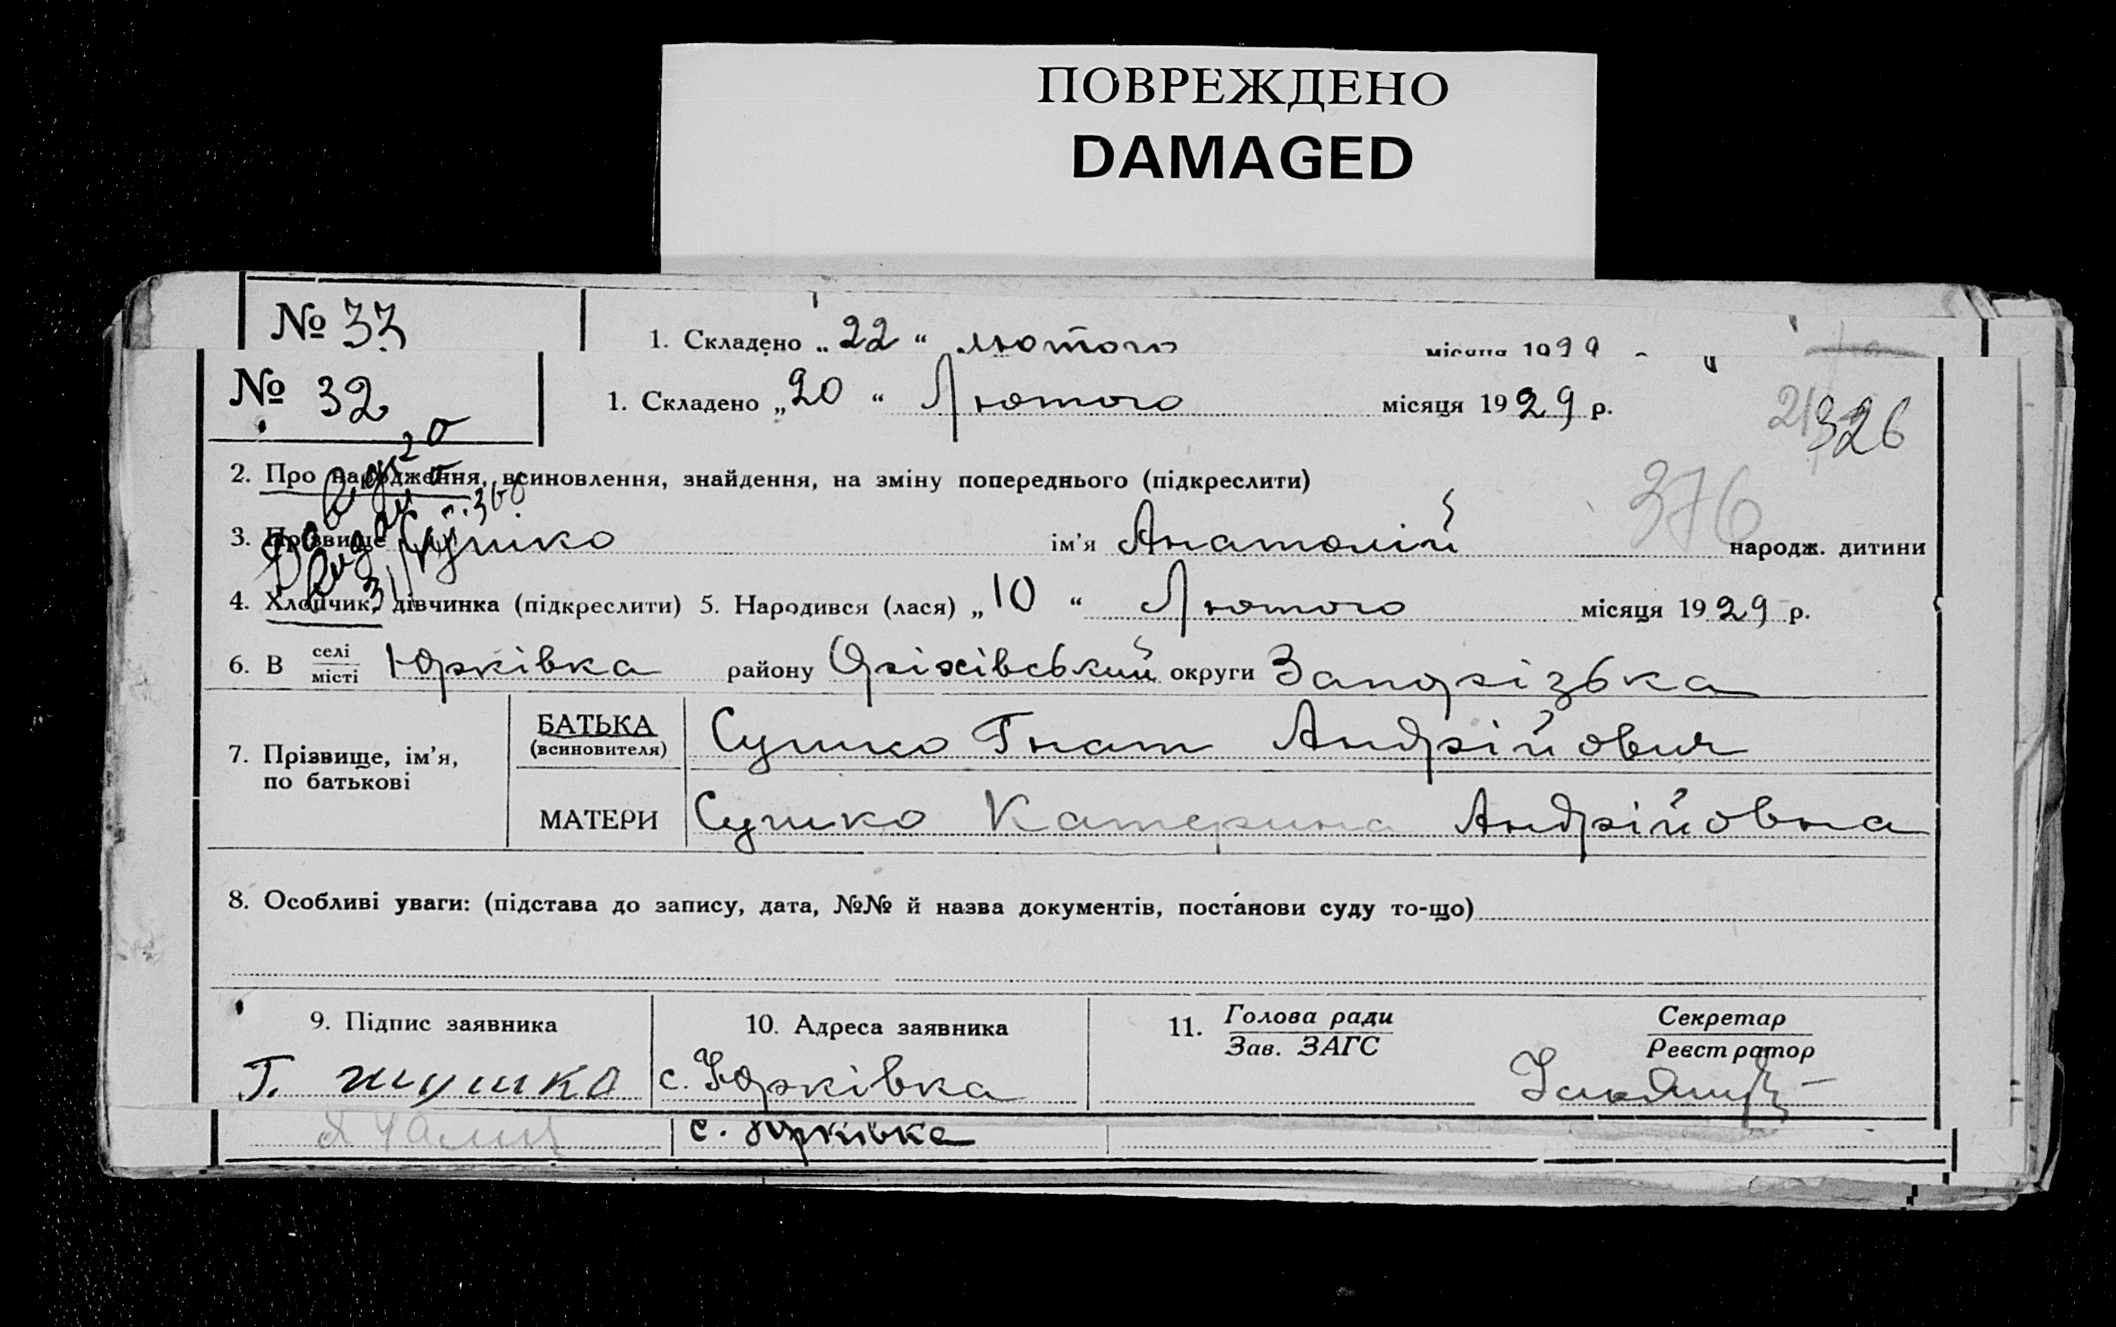 ПОВРЕЖДЕНО
DAMAGED
№ 33
1. Складено „ 22 “ лютого місяця 1929
№ 32
1. Складено „ 20 “ Лютого місяця 1929 р.
326
2. Про народження, всиновлення, знайдення, на зміну попереднього (підкреслити)
376
3. Прізвище Сушко ім’я Анатолій народж. дитини
4. Хлопчик, дівчинка (підкреслити) 5. Народився (лася) „ 10 “ Лютого місяця 1929 р.
6. В селі місті Юрківка району Оріхівський округи Запорізька
7. Прізвище, ім’я, по батькові
БАТЬКА (всиновителя) Сушко Гнат Андрійович
МАТЕРИ Сушко Катерина Андрійовна
8. Особливі уваги: (підстава до запису, дата, №№ й назва документів, постанови суду то-що)
9. Підпис заявника
10. Адреса заявника
11. Голова ради Зав. ЗАГС
Секретар Реєстратор
Г. шушко
с. Юрківка
с. Юрківка